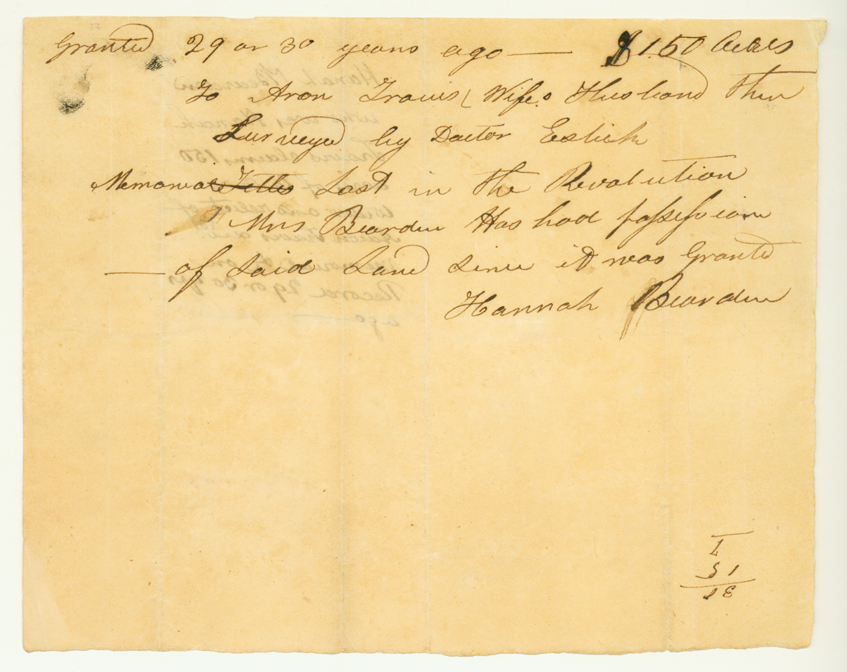 Granted 29 or 30 years ago — 150 Acres
To Aron Travis (Wifes Husband then
Surveyed by Doctor
Memorials Titles Lost in the Revolution
Mrs Bearden Has had possession
— of Said Land Since it was Granted
Hannah Bearden